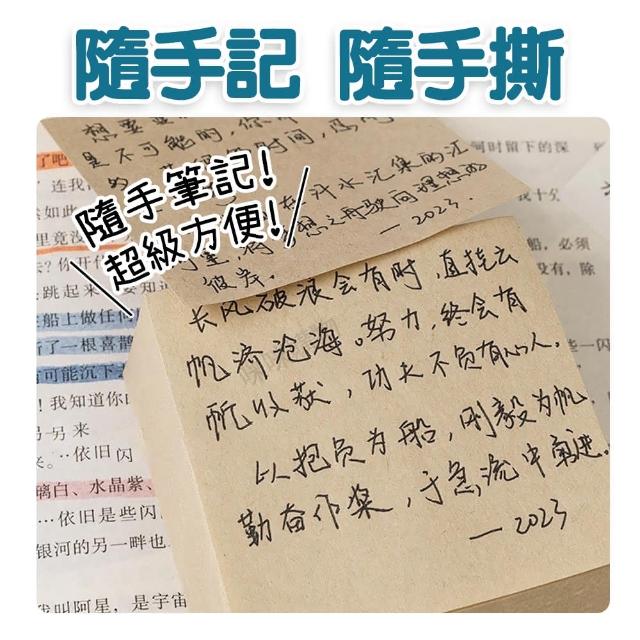 隨手記 隨手撕
隨手筆記!
超級方便!
是不可能的,你
在汗水汇集的江
想之舟驶向理想的
彼岸。 —2023.
长风破浪会有时,直挂云
帆济沧海。努力,终会有
所收获,功夫不负有心人。
以抱负为船,刚毅为帆
勤奋作桨,于急流中奋进。
—2023
了吧
连我
如此
里竟没
?你开
跳起来
要知道
船上做任何
了一根喜鹊
可能沉下
!我知道你
另另来
来。…依旧闪
璃白、水晶紫、
…依旧是些闪
银河的另一畔也
叫阿星,是宇宙
河时留下的深
我十分
船,必须
没有,除
些一闪